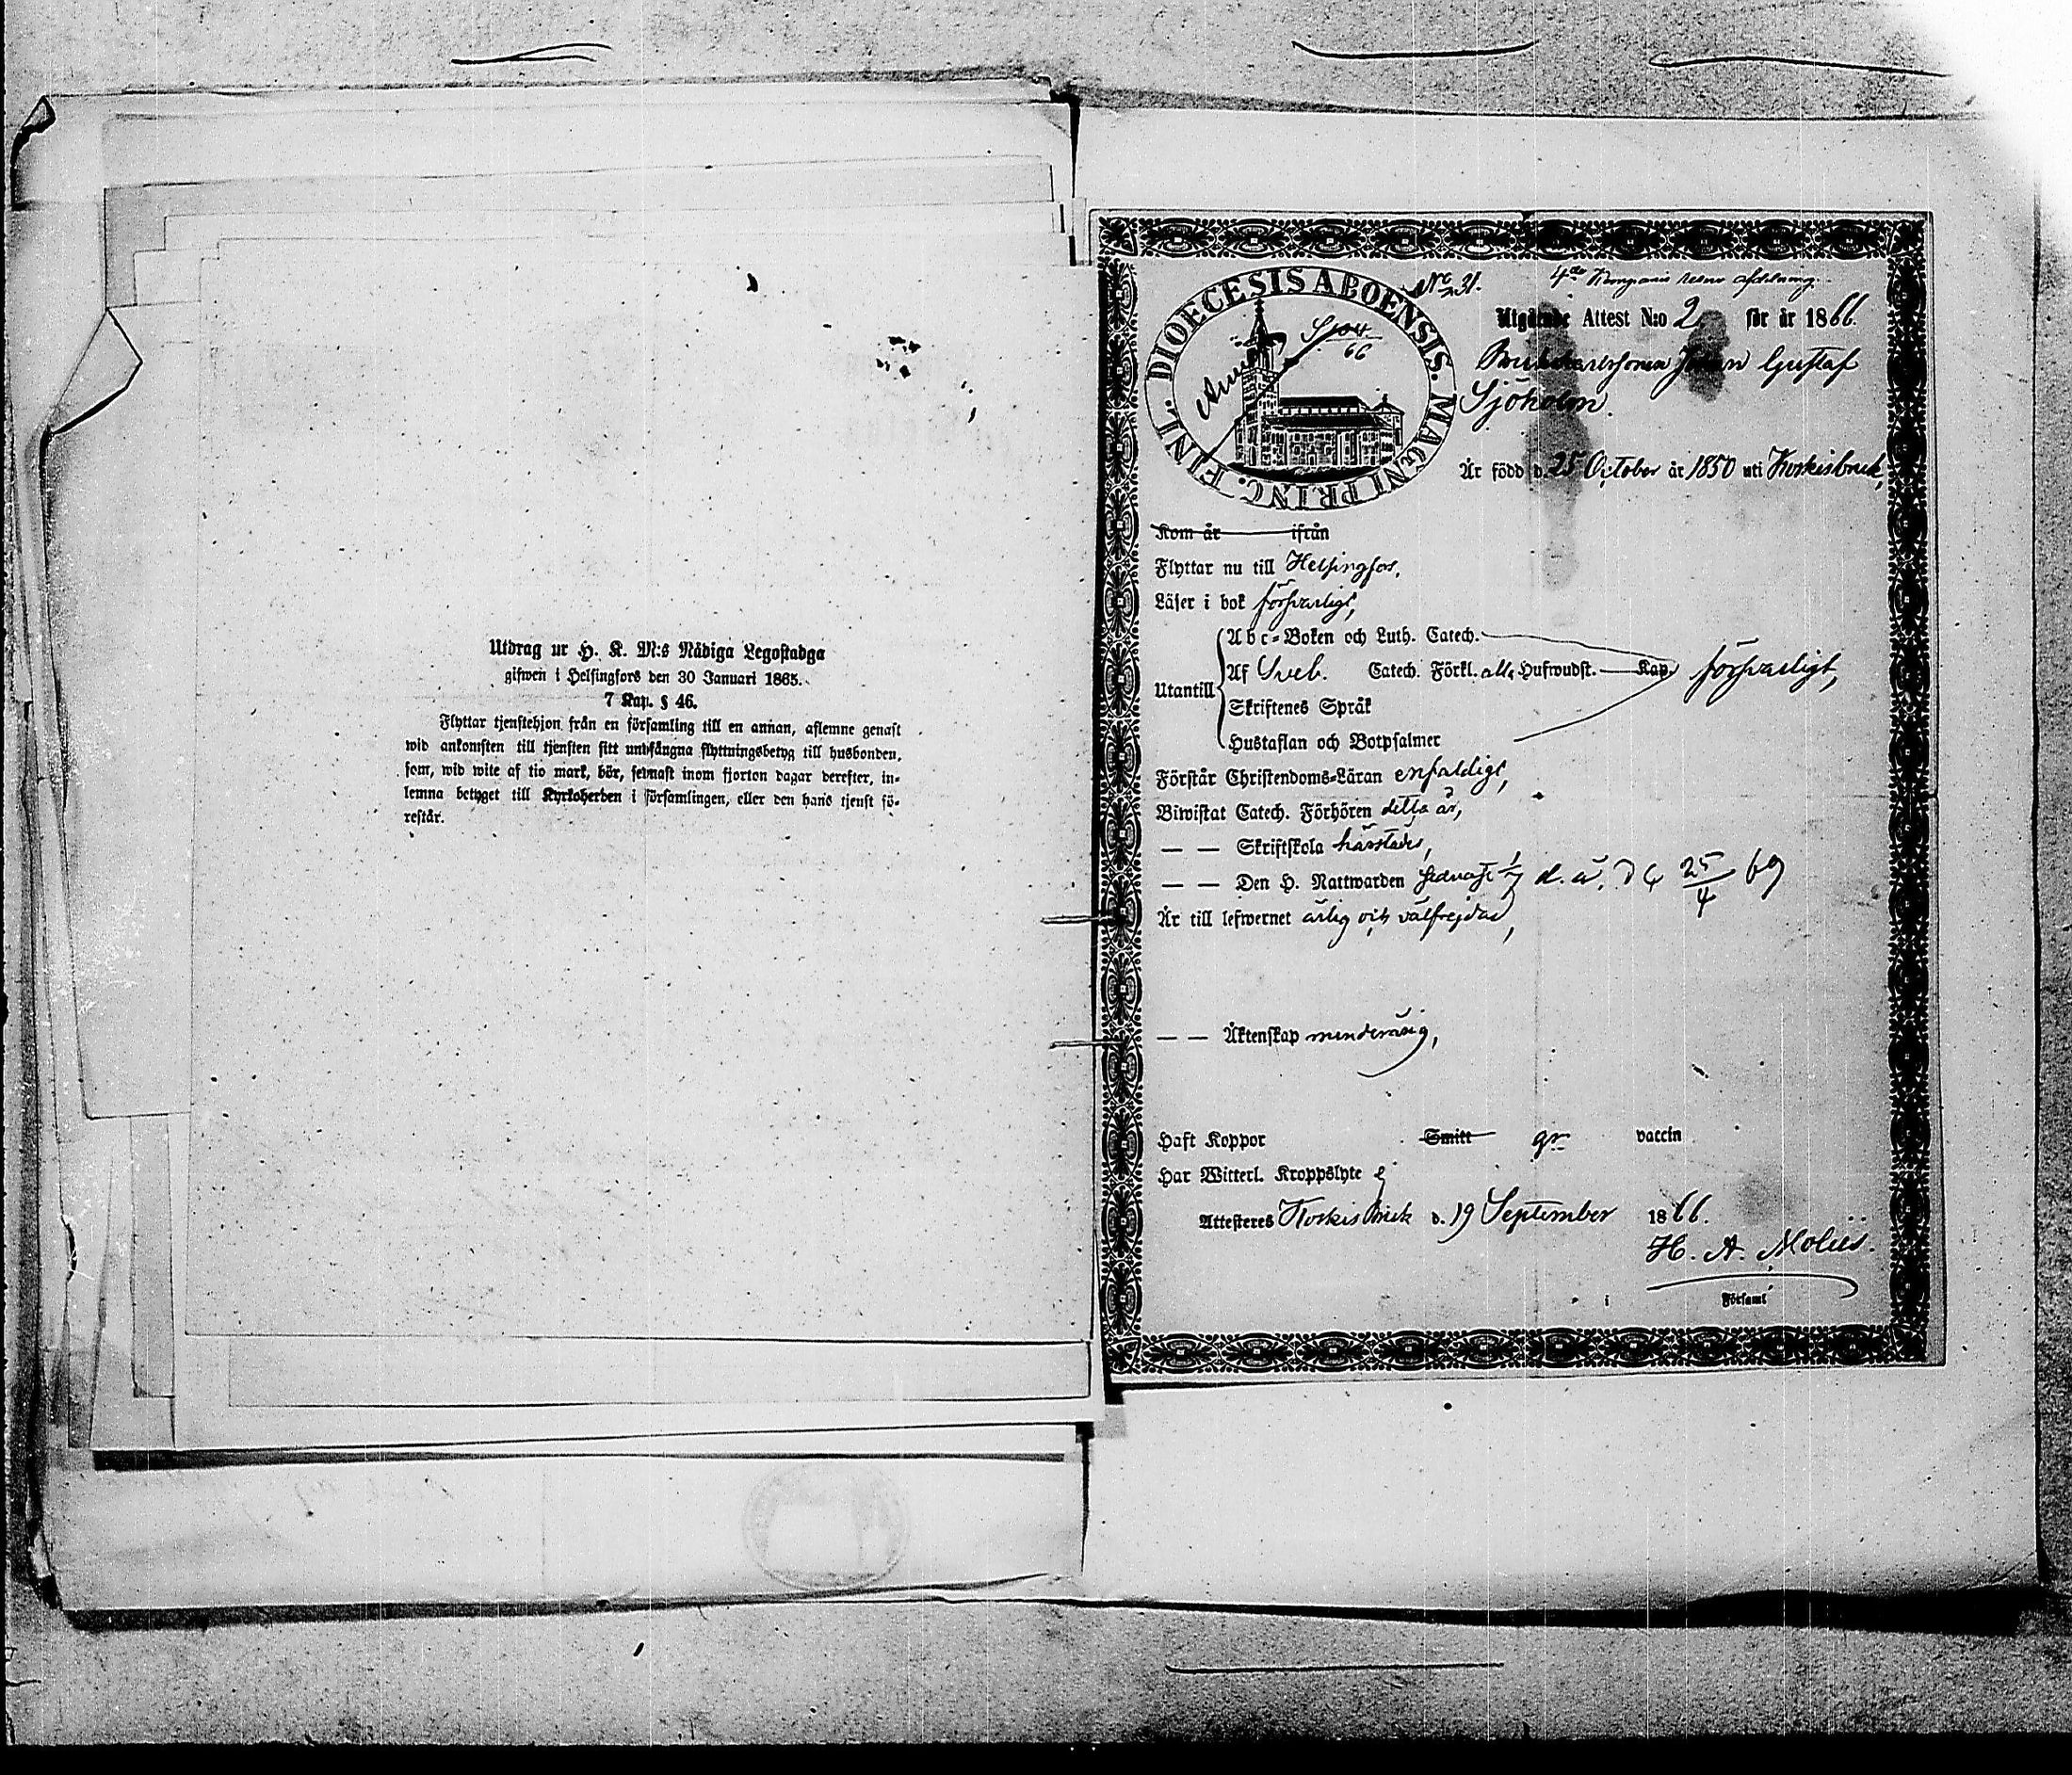 Utdrag ur H. K. M:s Nådiga Legostadga
gifwen i Helsingfors den 30 Januari 1865.
7 Kap. § 46.
Flyttar tjenstehjon från en församling till en annan, aflemne genast
wid ankomsten till tjensten sitt undfångna flyttningsbetyg till husbonden,
som, wid wite af tio mark, bör, sednast inom fjorton dagar derefter, in-
lemna betyget till Kyrkoherden i församlingen, eller den hans tjenst fö-
restår.
DIOECESIS ABOENSIS. MAGNI PRINC. FINL.
No 31.
4de Kompanis afdelning.
66
Utgående Attest N:o 2 för år 1866.
Johan Gustaf
Sjöholm.
Är född d. 25 October år 1850 uti Koskisbruk,
Kom år ifrån
Flyttar nu till Helsingfors,
Läser i bok försvarligt,
Utantill
Abc-Boken och Luth. Catech.
Af Sveb. Catech. Förkl. alla Hufwudst. Kap. försvarligt,
Skriftenes Språk
Hustaflan och Botpsalmer
Förstår Christendoms-Läran enfaldigt,
Biwistat Catech. Förhören detta år,
— — Skriftskola härstädes,
— — Den H. Nattwarden sednast 1/7 d. å. 25/4 69
Är till lefwernet ärlig och välfrejdad,
— — Äktenskap minderårig,
Haft Koppor Smitt gn vaccin
Har Witterl. Kroppslyte ej
Attesteres Koskis Bruk d. 19 September 1866.
H. A. Molin.
i Församl